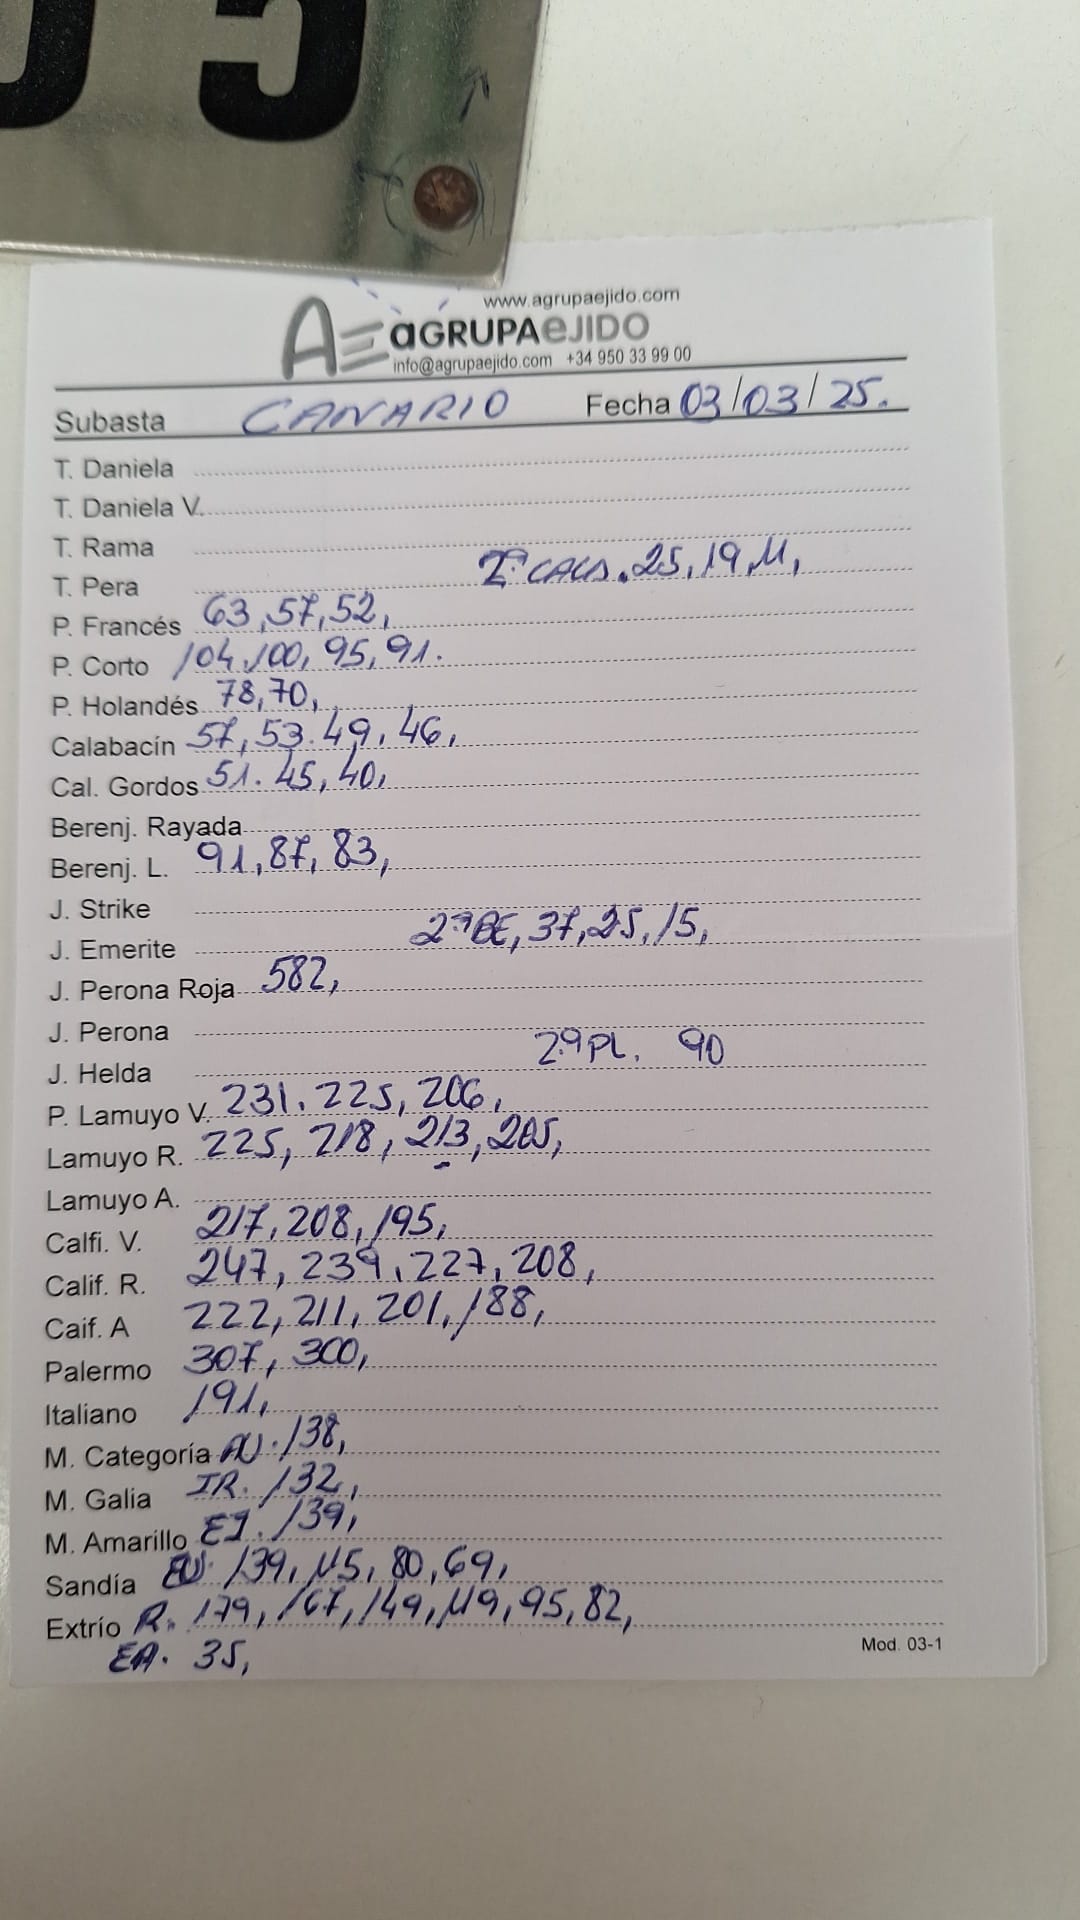 05
www.agrupaejido.com
AE aGRUPAeJIDO
info@agrupaejido.com +34 950 33 99 00
Subasta CANARIO Fecha 03/03/25.
T. Daniela
T. Daniela V.
T. Rama
T. Pera 2ª CALA. 25, 19, 11,
P. Francés 63, 57, 52,
P. Corto 104, 100, 95, 91.
P. Holandés 78, 70,
Calabacín 57, 53. 49, 46,
Cal. Gordos 51. 45, 40,
Berenj. Rayada
Berenj. L. 91, 87, 83,
J. Strike
J. Emerite 2ª BE, 37, 25, 15,
J. Perona Roja 582,
J. Perona
J. Helda 2ª PL. 90
P. Lamuyo V. 231. 225, 206,
Lamuyo R. 225, 218, 213, 205,
Lamuyo A.
Calfi. V. 217, 208, 195,
Calif. R. 247, 239, 227, 208,
Caif. A 222, 211, 201, 188,
Palermo 307, 300,
Italiano 191,
M. Categoría AV. 138,
M. Galia IR. 132,
M. Amarillo EJ. 139,
Sandía 139, 115, 80, 69,
Extrío R. 179, 167, 149, 119, 95, 82,
EA. 35,
Mod. 03-1